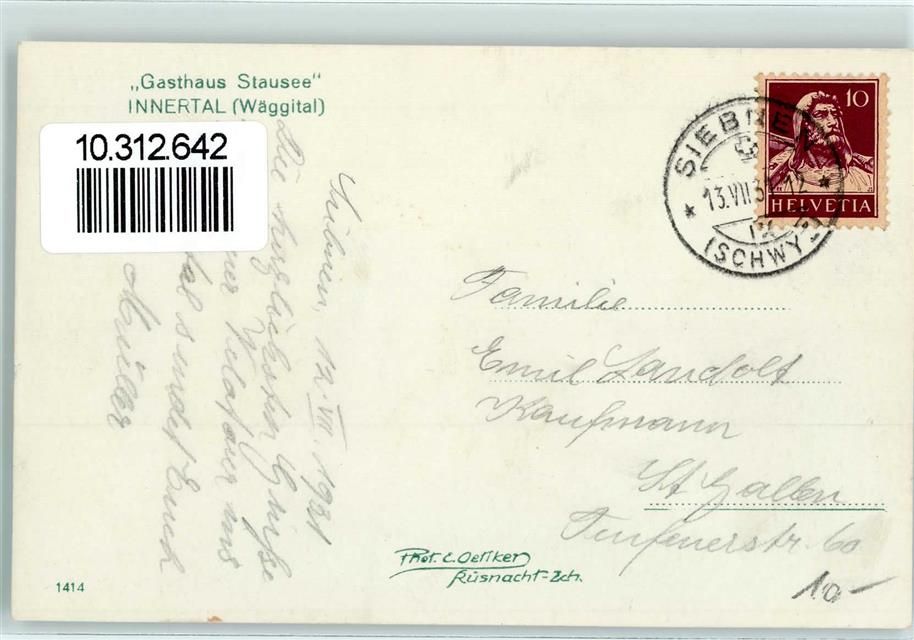 „Gasthaus Stausee"
INNERTAL (Wäggital)
10.312.642
Siebnen, 12. VII. 1931
Die herzlichsten Grüße
aus
sendet Euch
Müller
SIEBNEN
13.VII.31 12
(SCHWYZ)
10
HELVETIA
Familie
Emil Landolt
Kaufmann
St Gallen
Teufenerstr. 60
10.-
Phot. E. Oetiker
Küsnacht-Zch.
1414